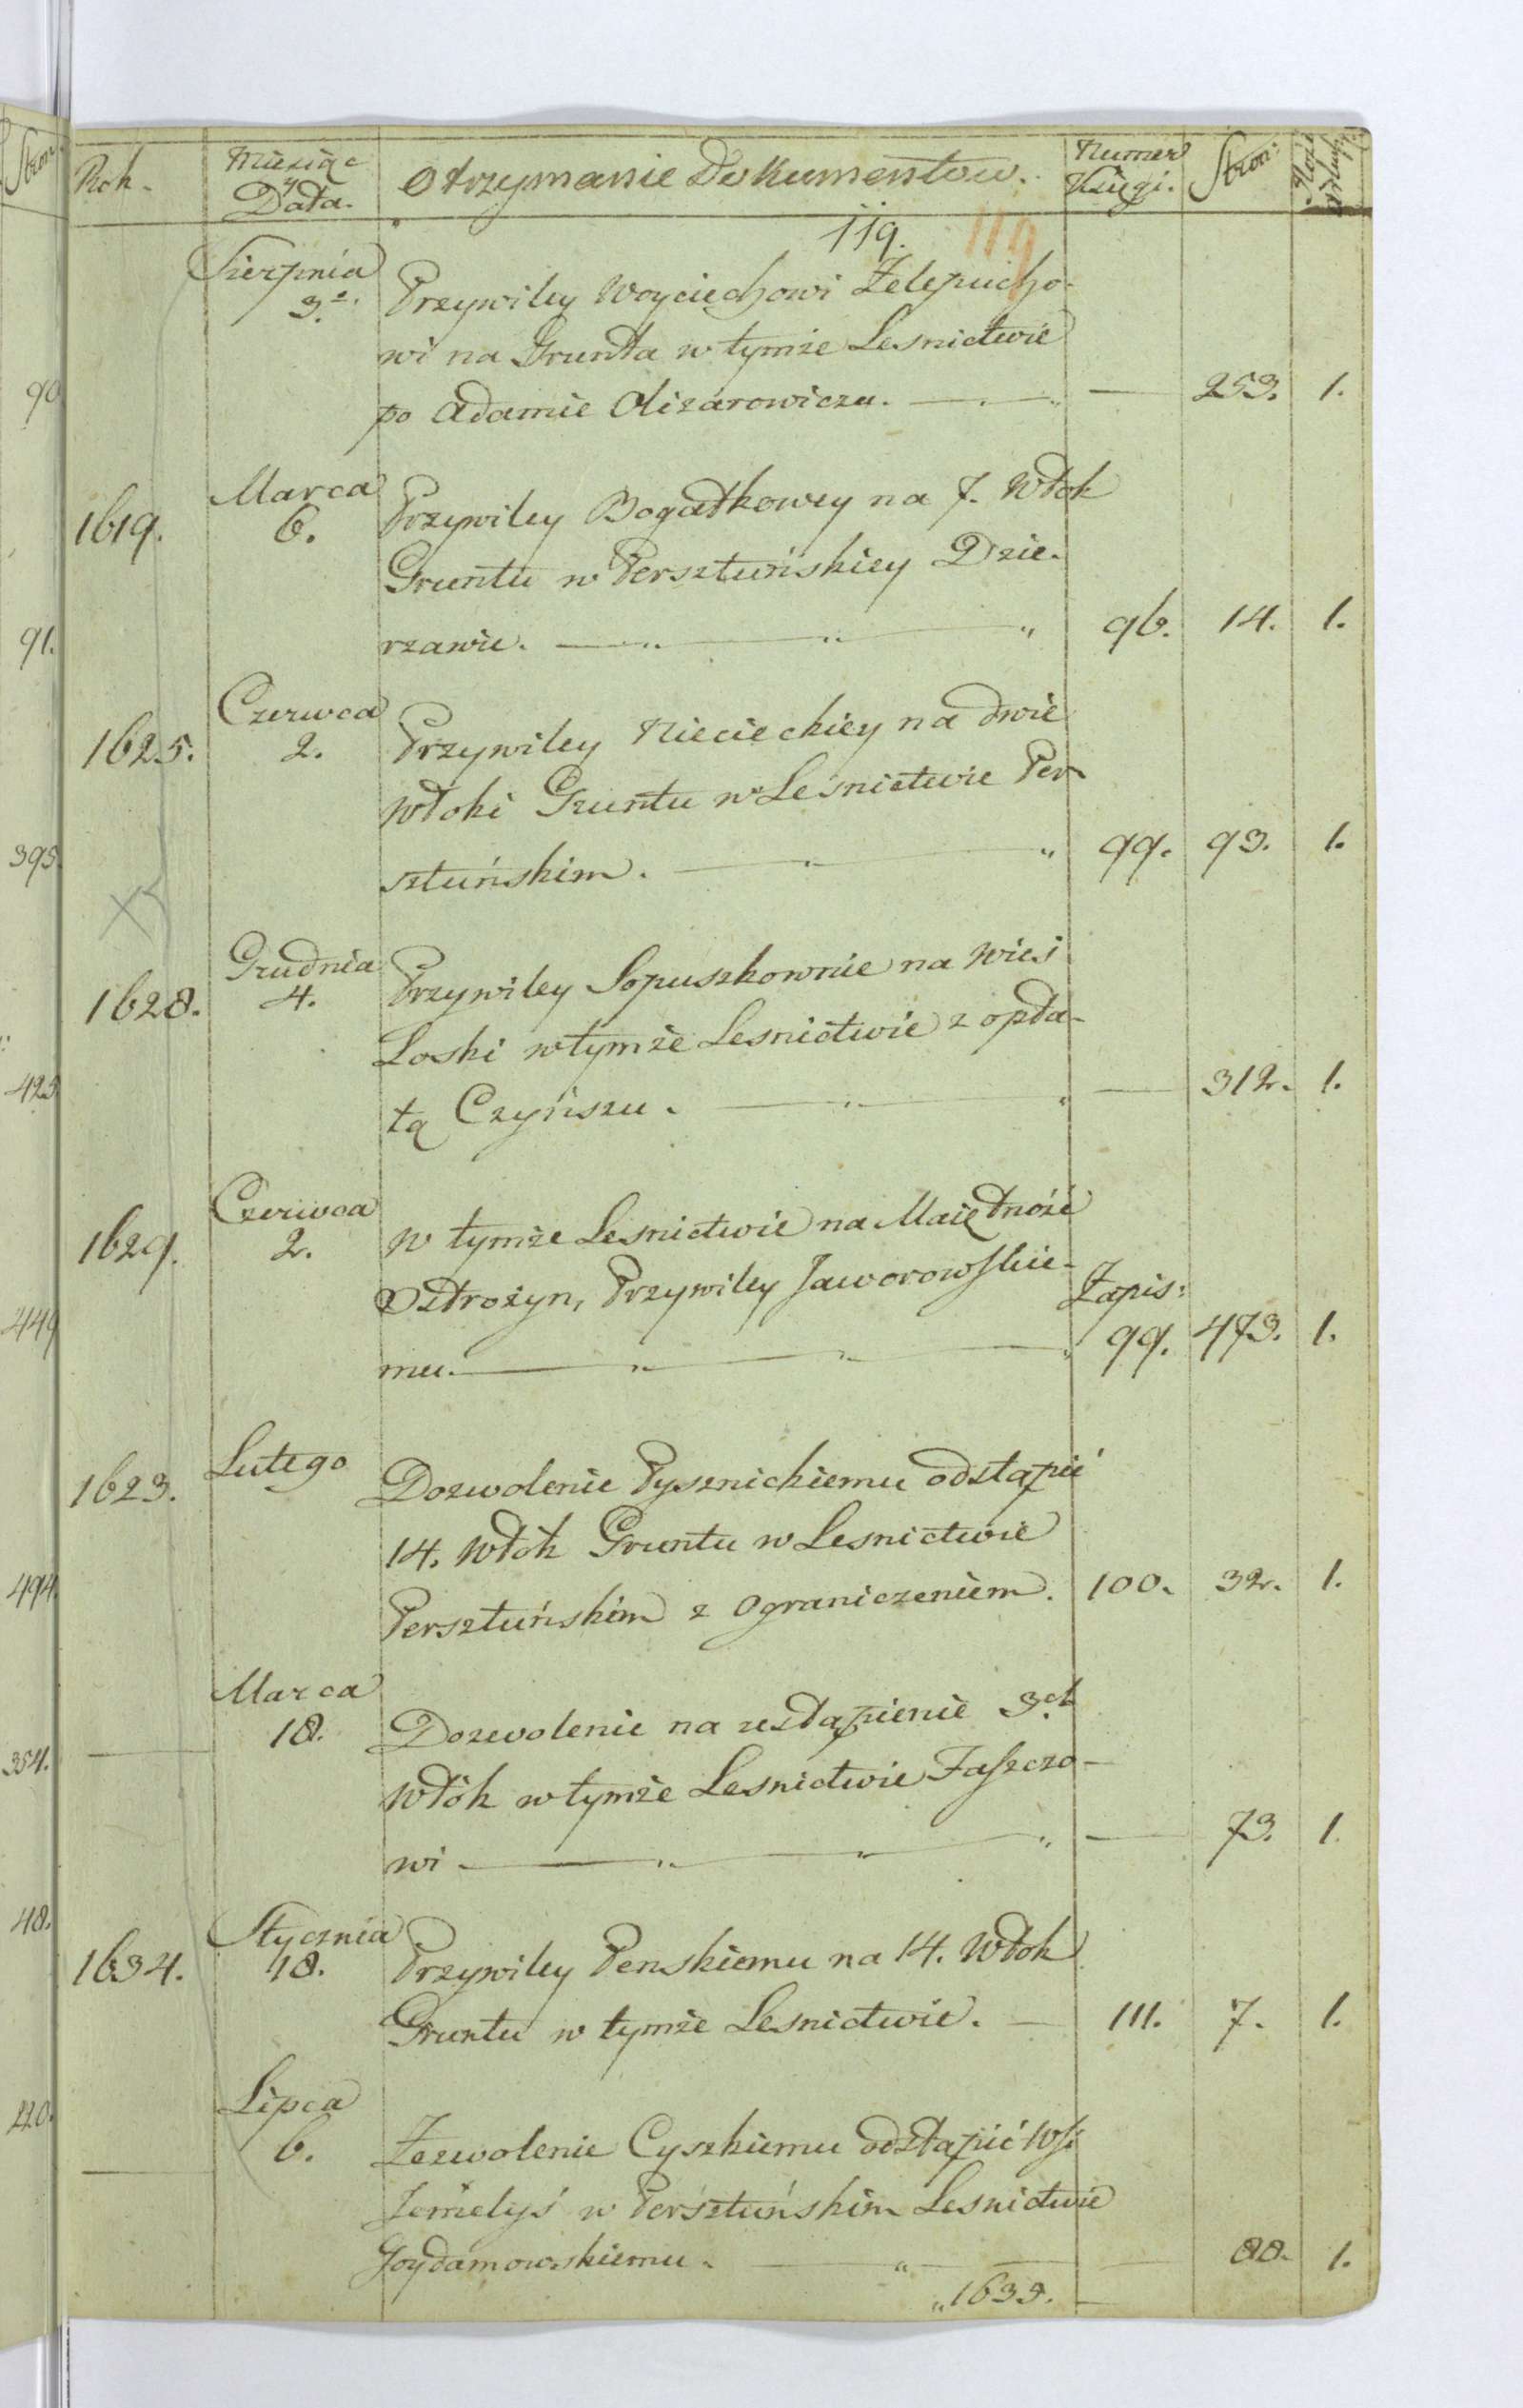 Stron:
Rok.
Miesiąc
y
Data.
Otrzymanie Dokumentow.
Numer
Księgi.
Stron:
119. 119
Sierpnia
3º.
Przywiley Woyciechowi Zelepucho-
wi na Grunta w tymże Lesnictwie
po Adamie Olizarowiczu. — 253. 1.
90
1619.
Marca
6.
Przywiley Bogatkowey na 7. Włok
Gruntu w Persztuńskiey Dzie-
rzawie. — 96. 14. 1.
91.
1625.
Czerwca
2.
Przywiley Niecieckiey na dwie
Włoki Gruntu w Lesnictwie Per
sztuńskim. — 99. 93. 1.
395.
1628.
Grudnia
4.
Przywiley Sopuszkownie na Wieś
Loski w tymże Lesnictwie z opła-
tą Czyńszu. — 312. 1.
425
1629.
Czerwca
2.
w tymże Lesnictwie na Maiętność
Ostrożyn, Przywiley Jaworowskie-
mu. — Zapis: 99. 473. 1.
449
1623.
Lutego
Dozwolenie Pysznickiemu odstąpić
14. Włok Gruntu w Lesnictwie
Persztuńskim z Ograniczeniem. 100. 32. 1.
494.
Marca
18.
Dozwolenie na zestąpienie 3ch
Włok w tymże Lesnictwie Faszczo-
wi — 73. 1.
354.
48.
1634.
Stycznia
18.
Przywiley Penskiemu na 14. Włok
Gruntu w tymże Lesnictwie. — 111. 7. 1.
Lipca
6.
Zezwolenie Cyszkiemu odstąpić Wsi
Jemielyś w Persztuńskim Lesnictwie
Goydamowskiemu. — 88. 1.